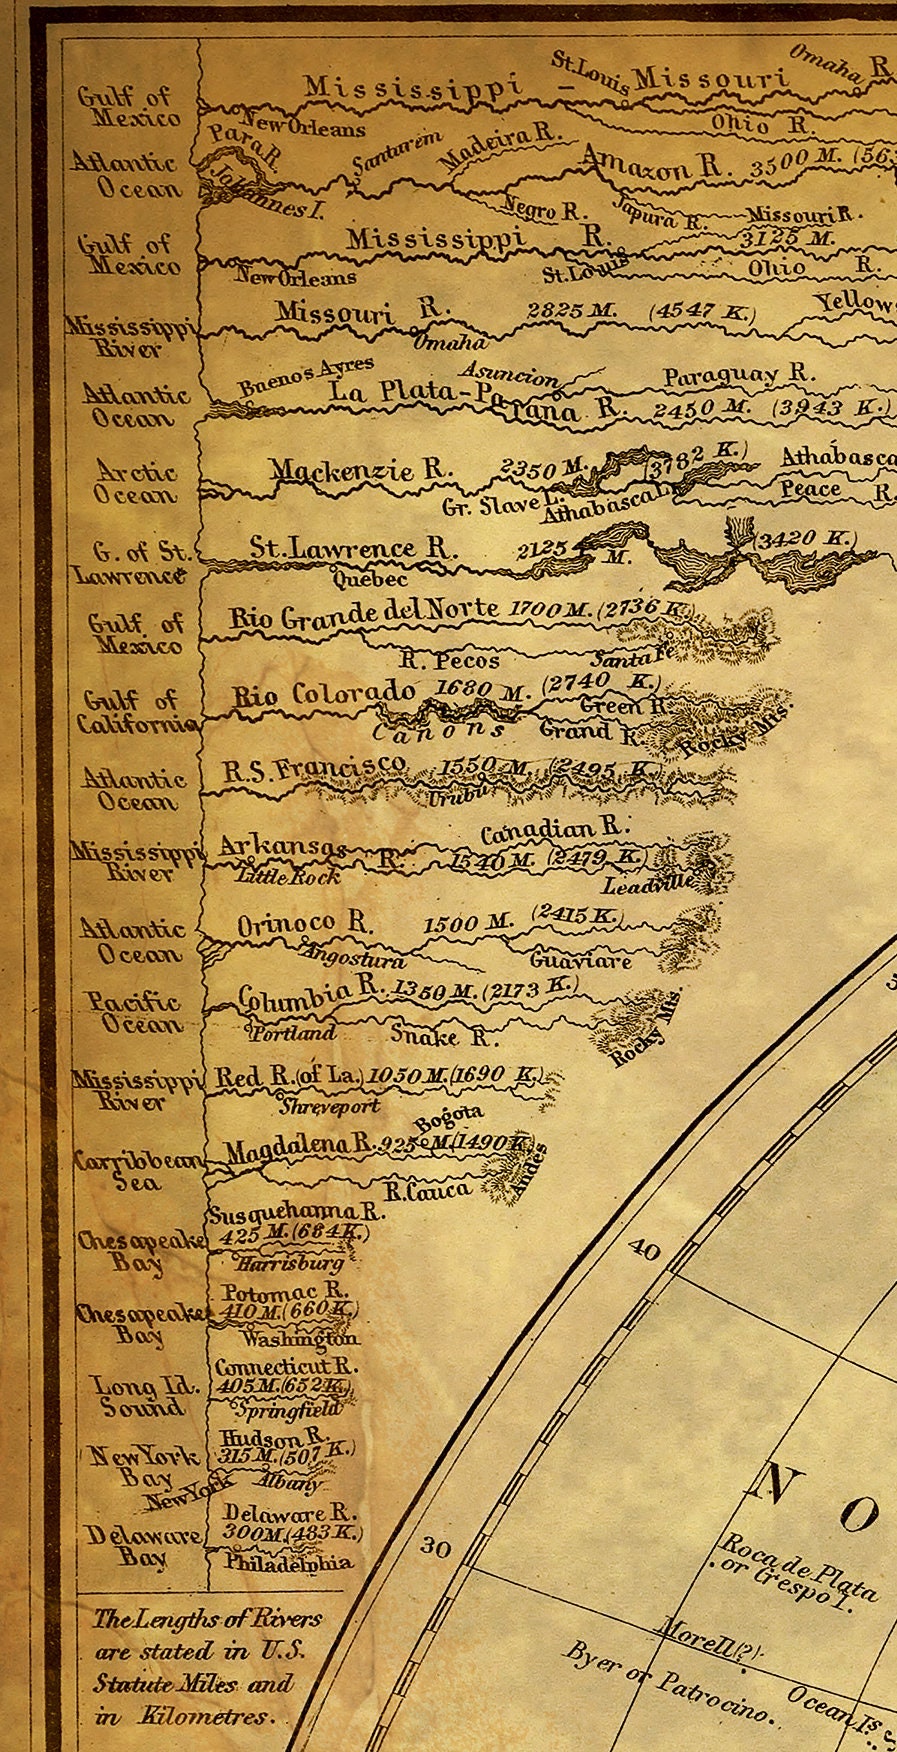 Gulf of Mexico
Mississippi - Missouri R
St. Louis
Omaha
New Orleans
Ohio R.
Atlantic Ocean
Para R.
Johannes I.
Santarem
Madeira R.
Amazon R. 3500 M.
Negro R.
Japura R.
Gulf of Mexico
Mississippi R.
3125 M.
Missouri R.
New Orleans
St. Louis
Ohio R.
Mississippi River
Missouri R. 2825 M. (4547 K.)
Omaha
Yellows
Atlantic Ocean
Buenos Ayres
La Plata-Parana R. 2450 M. (3943 K.)
Asuncion
Paraguay R.
Arctic Ocean
Mackenzie R. 2350 M. (3782 K.)
Gr. Slave L.
Athabasca L.
Athabasca
Peace R.
G. of St. Lawrence
St. Lawrence R. 2125 M. (3420 K.)
Quebec
Gulf of Mexico
Rio Grande del Norte 1700 M. (2736 K.)
R. Pecos
Santa Fe
Gulf of California
Rio Colorado 1680 M. (2740 K.)
Canons
Green R.
Grand R.
Rocky Mts.
Atlantic Ocean
R. S. Francisco 1550 M. (2495 K.)
Urubu
Mississippi River
Arkansas R. 1540 M. (2479 K.)
Canadian R.
Little Rock
Leadville
Atlantic Ocean
Orinoco R. 1500 M. (2415 K.)
Angostura
Guaviare
Pacific Ocean
Columbia R. 1350 M. (2173 K.)
Portland
Snake R.
Rocky Mts.
Mississippi River
Red R. (of La.) 1050 M. (1690 K.)
Shreveport
Carribbean Sea
Magdalena R. 925 M. (1490 K.)
Bogota
R. Cauca
Andes
Chesapeake Bay
Susquehanna R.
425 M. (684 K.)
Harrisburg
Chesapeake Bay
Potomac R.
410 M. (660 K.)
Washington
Long Id. Sound
Connecticut R.
405 M. (652 K.)
Springfield
New York Bay
Hudson R.
315 M. (507 K.)
New York
Albany
Delaware Bay
Delaware R.
300 M. (483 K.)
Philadelphia
The Lengths of Rivers
are stated in U.S.
Statute Miles and
in Kilometres.
40
30
N O
Roca de Plata
or Crespo I.
Morell (?)
Byer or Patrocino.
Ocean Is.